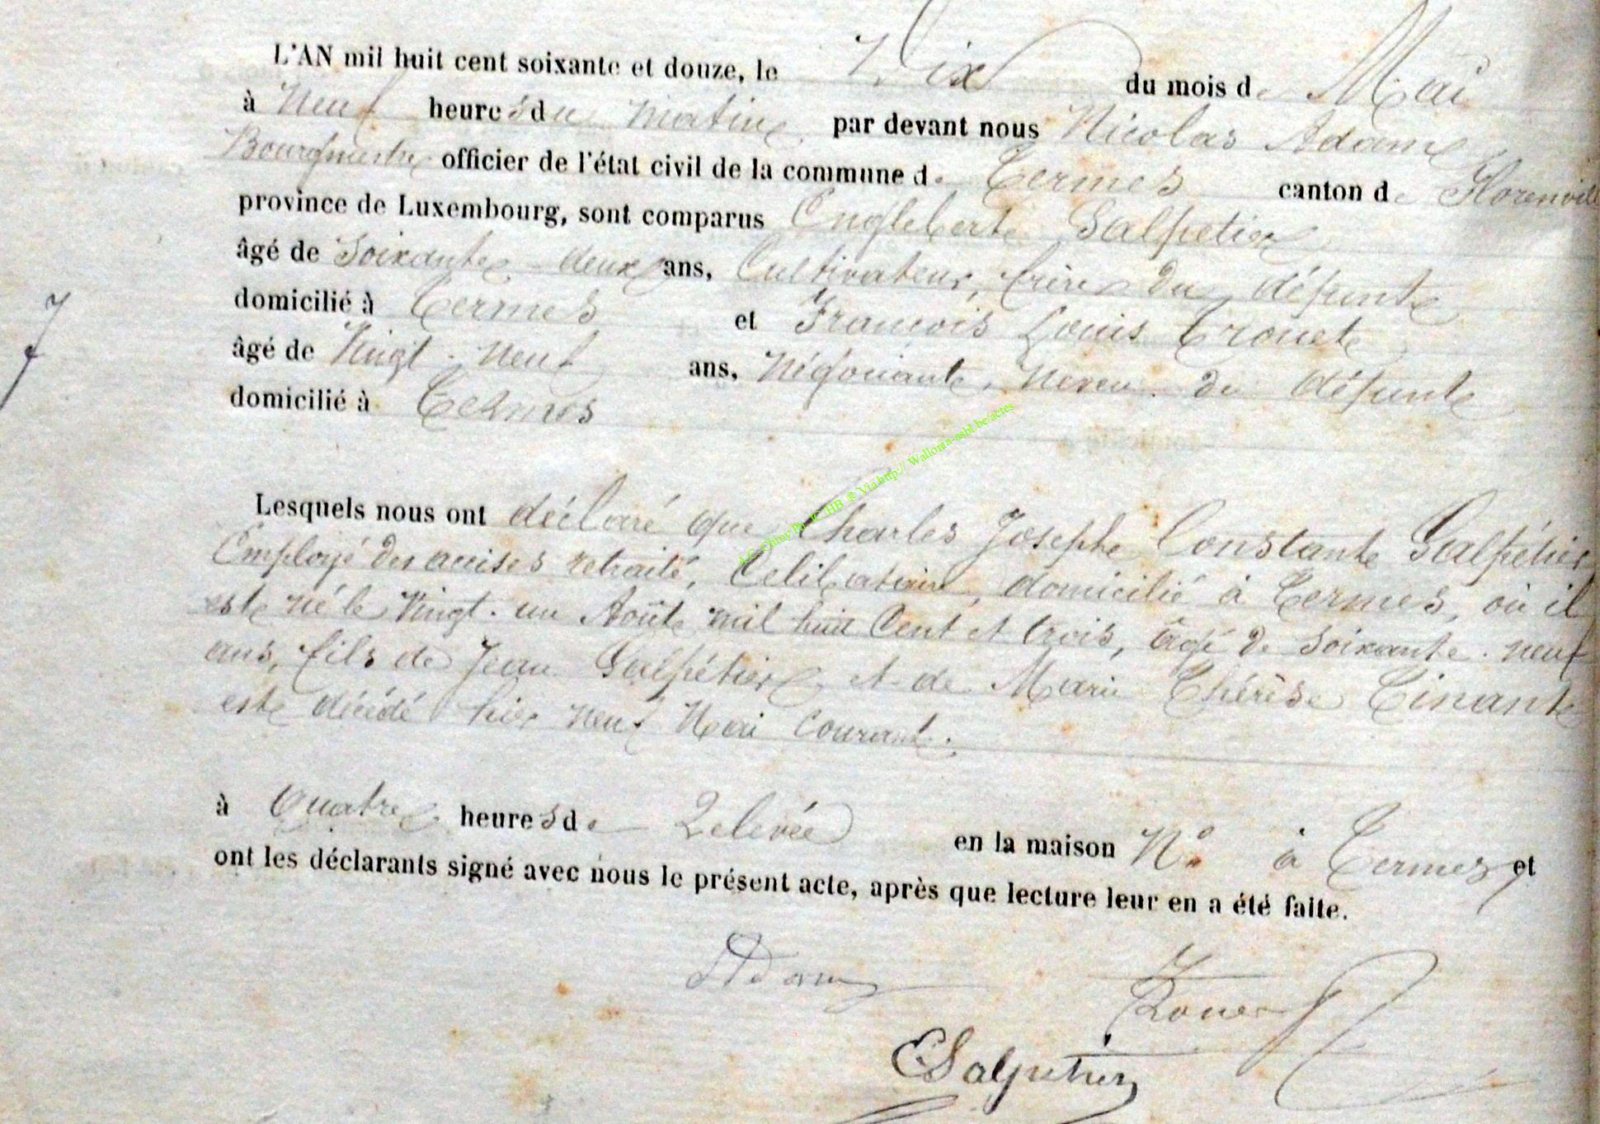 L'AN mil huit cent soixante et douze, le Dix du mois de Mai
à Neuf heures du matin par devant nous Nicolas Adam
Bourgmestre officier de l'état civil de la commune de Termes canton de Florenvill
province de Luxembourg, sont comparus Englebert Salpetier
âgé de Soixante deux ans, Cultivateur, frère du défunt
domicilié à Termes et François Louis Trouet
âgé de Vingt-neuf ans, Négociant, Neveu du défunt
domicilié à Termes
Lesquels nous ont déclaré que Charles Joseph Constant Salpétier
Employé des accises retraité, Celibataire, domicilié à Termes, où il
est né le Vingt-un Août mil huit Cent et trois, âgé de Soixante-neuf
ans, fils de Jean Salpétier et de Marie Thérèse Tinant
est décédé hier neuf Mai Courant.
à Quatre heures de Relevée en la maison N° à Termes, et
ont les déclarants signé avec nous le présent acte, après que lecture leur en a été faite.
Adam
Trouet
E Salpetier